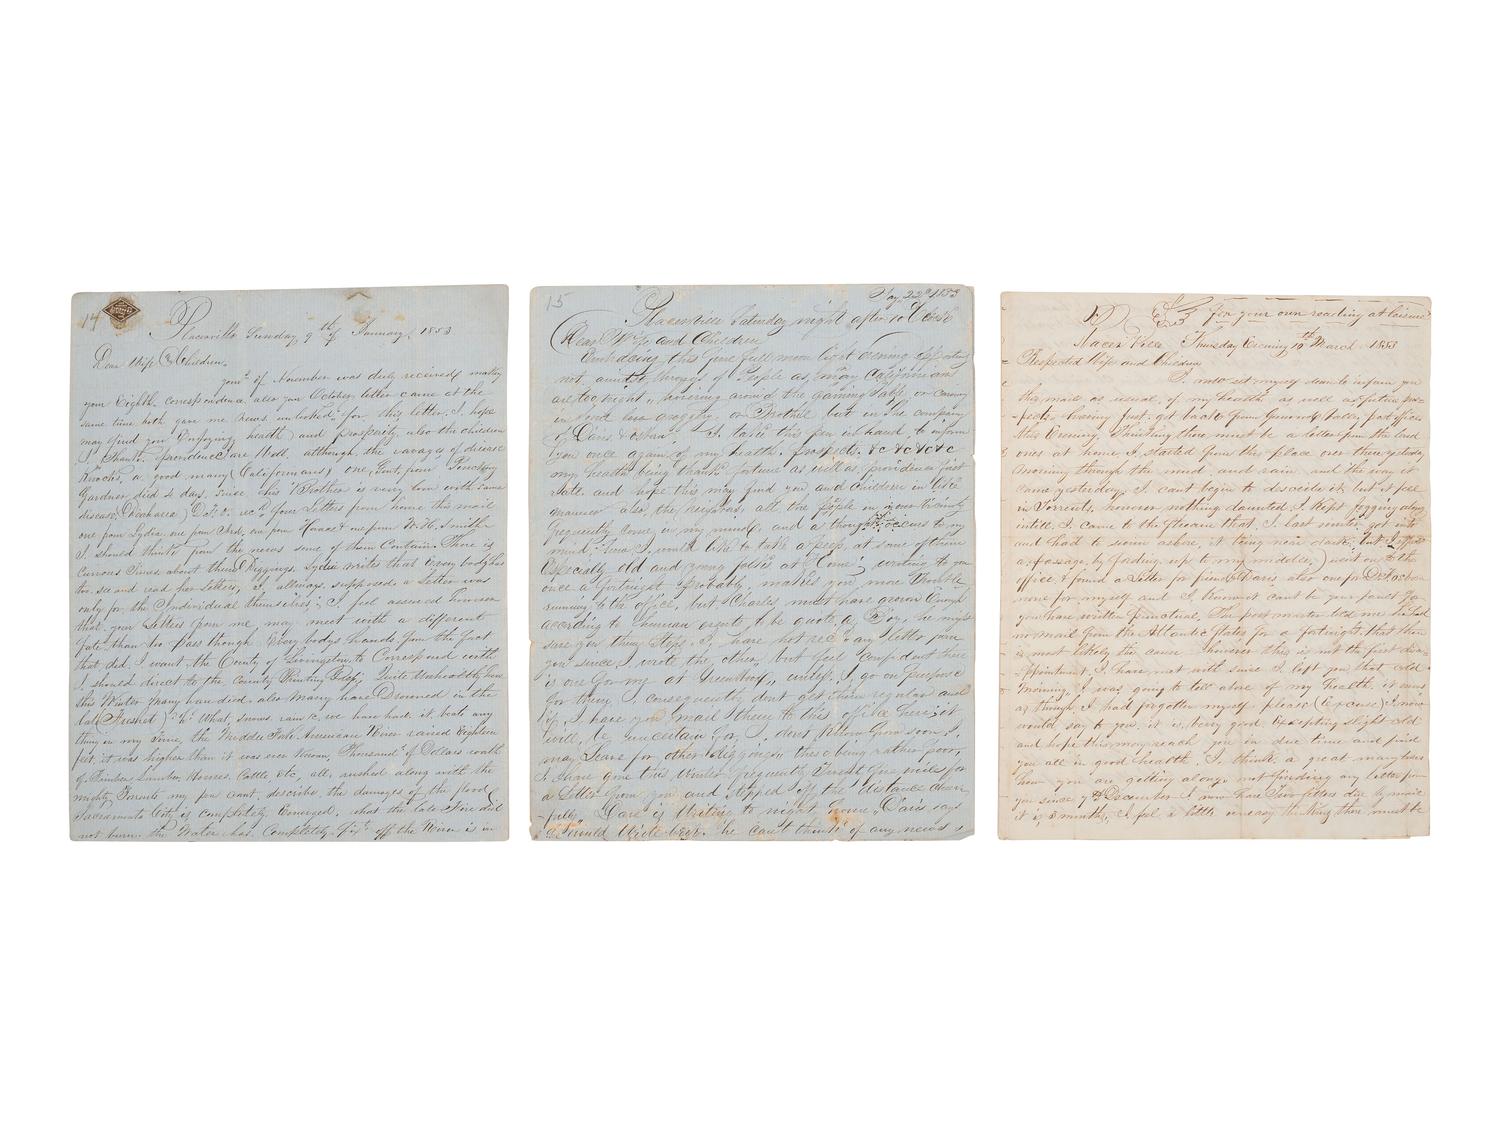 14
Placerville Sunday 9th of January, 1853
Dear Wife & Children.
your's of November was duly received making
your Eighth correspondence also your October letter came at the
same time both gave me News unlooked for this letter. I hope
may find you Enjoying health and prosperity also the children
I thank providence are Well. although the ravages of disease
Knocks a good many (Californians) one, Lent, from
Gardner died 4 days, since his Brother is very low with same
disease, (Diarhaea) Letters from home this mail
one from Lydia, one from Ira, one from Horace & one from W. H. Smith
I should think from the news some of them Contain. There is
Curious Times about them Diggings. Lydia writes that every body has
to see and read her Letters, I allways supposed a Letter was
only for the Individual themselves; I feel assured however
that your Letters from me, may meet with a different
fate than to pass through Every bodys hands from the fact
that did I want the County of Livingston to Correspond with
I should direct to the County Printing Quite Unhealthy here
this Winter Many have died also Many have Drowned in the
late (Freshed) What, Snows rain &c, we have had. it beats any
thing in my Time, the Middle Fork American River raised Eighteen
feet, it was higher than it was ever Known, Thousands of Dollars worth
of Timber Lumber, Houses, Cattle etc, all, rushed along with the
mighty Torrents my pen cant describe the damages of the flood
Sacramento City is completely what the late Fire did
not burn. the Water has Completely off the River is in
15
22d 1853
Placerville Saturday night after 10 O'Clock
Dear Wife and Children
Embracing this fine full moon light evening opportunity
not, amidst throngs of People as many Californians
are to night, hovering around the gaming Table or carousing
in grog or Brothel but in the company
of Davis & I take this pen in hand to inform
you once again of my health. Prospects. &c &c &c
my health being thanks fortune as well as providence first
rate. and hope this may find you and Children in like
manner also the neighbors, all the People in our vicinity
frequently come in my mind, and a thought occurs to my
mind, I would like to take a peep. at some of them
Especially old and young folks at Home, writing to you
once a fortnight probably. makes you more trouble
running to the office, but Charles must have grown Enough
according to human events to be quite a Boy, he must
save you them Steps. I have not rec'd any Letter from
you since I wrote the other, but feel confident there
is one for me at Greenwood, unless I go on purpose
for them, I consequently dont get them regular and
if I have you mail them to this office here, it
will, be uncertain for I don't know how soon I
may Leave for other Diggings, these being rather poor,
I have gone this Winter frequently Twenty five miles for
a Letter from you and stepped off the distance cheer-
fully. Davis is Writing to night home, Davis says
he can't think of any news
No 3 For your own reading at leisure
Placer Ville Thursday Evening 10th March 1853
Respected Wife and Children
I now set myself down to inform you
this mail as usual, of my health as well as future pro-
-spects having just got back from Greenwood Valley post office
this Evening. Thinking there must be a letter from the loved
ones at home I, started from this place over there yesterday
morning through the mud and rain, and the way it
came yesterday. I cant begin to describe it but it fell
in Torrents, however nothing daunted I kept jogging along
untill I came to the Stream that, I last winter got into
and had to swim ashore, it being near dark, but I
a passage, by fording, up to my middle) went on to the
office & found a Letter for friend Davis also one for
none for myself and I know it cant be your fault for
you have written punctual. The post master told me he had
no mail from the Atlantic States for a fortnight. that then
is most likely the cause. however this is not the first disa-
-ppointment, I have met with since I left you that cold
morning. I was going to tell above of my health it seems
as though I had forgotten myself please (excuse) I now
would say to you it is, very good Excepting slight cold
and hope this may reach you in due time and find
you all in good health. I think, a great many times
how you are getting along. not finding any letter from
you since 7th December I now have Two letters due by mail
it is, 3 months, I feel a little uneasy thinking there must be